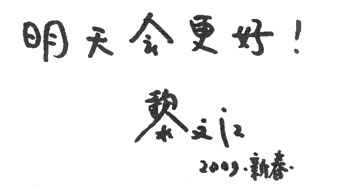 明天会更好！
黎
2009.新春.